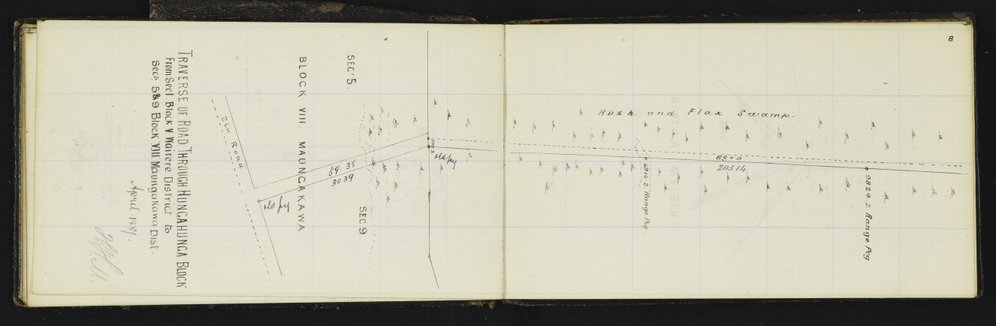 TRAVERSE OF ROAD THROUGH HUNGAHUNGA BLOCK
From Sec 1 Block V Waitere District to
Secs 5 & 9 Block VIII Maungakawa Dist.
April 1887.
2ch Road
BLOCK VIII MAUNGAKAWA
SEC. 5.
SEC 9
69° 35
3039
old peg
old peg
8
Rush and Flax Swamp.
69° 0
20314
2 Range Peg.
9824.2 Range Peg